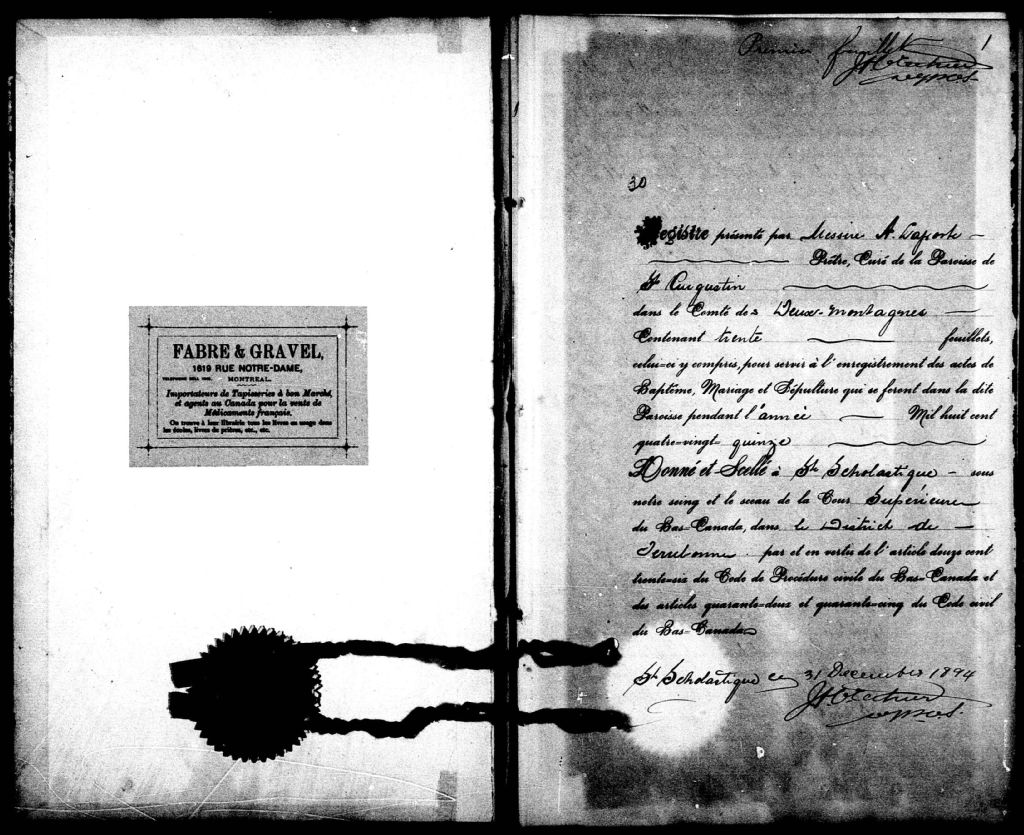 FABRE & GRAVEL,
1619 RUE NOTRE-DAME,
TELEPHONE BELL MONTREAL.
Importateurs de Tapisseries à bon Marché,
et agents au Canada pour la vente de
Médicaments français.
On trouve à leur librairie tous les livres en usage dans
les écoles, livres de prières, etc., etc.
Premier feuillet 1
30
Registre présenté par Messire A. Laporte
Prêtre, Curé de la Paroisse de
St Augustin
dans le Comté des Deux-Montagnes
Contenant trente feuillets,
celui-ci y compris, pour servir à l'enregistrement des actes de
Baptême, Mariage et Sépulture qui se feront dans la dite
Paroisse pendant l'année Mil huit cent
quatre-vingt quinze
Donné et Scellé à Ste Scholastique sous
notre seing et le sceau de la Cour Supérieure
du Bas-Canada, dans le District de
Terrebonne par et en vertu de l'article douze cent
trente-six du Code de Procédure civile du Bas-Canada et
des articles quarante-deux et quarante-cinq du Code civil
du Bas-Canada
Ste Scholastique ce 31 Décembre 1894